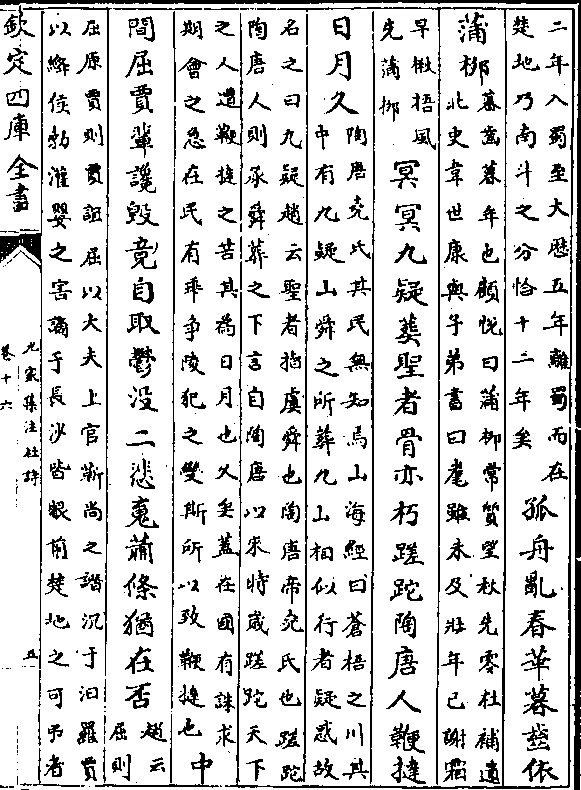 二年入蜀至大歷五年離蜀而在
楚地乃南斗之分恰十二年矣
孤舟亂春華暮齒依
蒲柳
暮齒暮年也顧悅曰蒲柳常質望秋先零杜補遺
北史韋世康與子弟書曰耄雖未及壯年已謝霜
早楸梧風
先蒲柳
冥冥九疑葬聖者骨亦朽蹉跎陶唐人鞭撻
日月久
陶唐堯氏其民無知焉山海經曰蒼梧之川其
中有九疑山舜之所葬九山相似行者疑惑故
名之曰九疑趙云聖者指虞舜也陶唐帝堯氏也蹉跎
陶唐人則承舜葬之下言自陶唐以來時歲蹉跎天下
之人遭鞭撻之苦其為日月也久矣蓋在國有誅求
期會之急在民有乖爭陵犯之變斯所以致鞭撻也
中
間屈賈輩讒毀竟自取鬱没二悲䰟蕭條猶在否
趙云
屈則
屈原賈則賈誼屈以大夫上官靳尚之譖沉于汨羅賈
以絳侯勃灌嬰之害謫于長沙皆眼前楚地之可弔者
欽定四庫全書
九家集注杜詩
卷十六
五